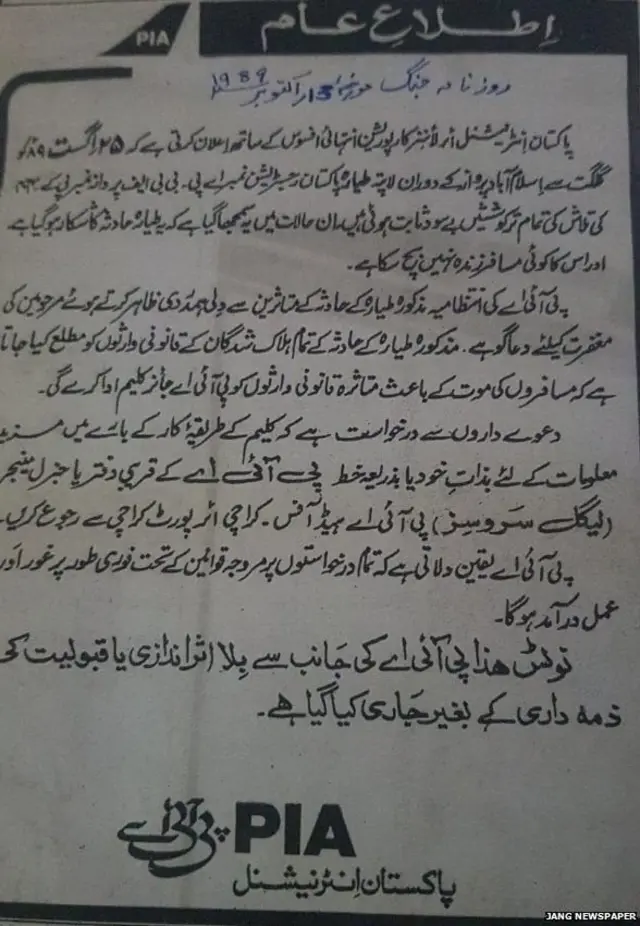 PIA
اِطلاعِ عام
روزنامہ جنگ مورخہ 13 اکتوبر 1989
پاکستان انٹرنیشنل ائرلائنز کارپوریشن انتہائی افسوس کے ساتھ اعلان کرتی ہے کہ ۲۵ اگست ۸۹ء کو
گلگت سے اسلام آباد پرواز کے دوران لاپتہ طیارہ پاکستان رجسٹریشن نمبر اے پی۔ بی بی ایف پرواز نمبر پی کے
کی تلاش کی تمام تر کوششیں بے سود ثابت ہوئی ہیں۔ ان حالات میں یہ سمجھا گیا ہے کہ یہ طیارہ حادثہ کا شکار ہو گیا ہے
اور اس کا کوئی مسافر زندہ نہیں بچ سکا ہے۔
پی آئی اے کی انتظامیہ مذکورہ طیارہ کے حادثہ کے متاثرین سے دلی ہمدردی ظاہر کرتے ہوئے مرحومین کی
مغفرت کیلئے دعاگو ہے۔ مذکورہ طیارہ کے حادثہ کے تمام ہلاک شدگان کے قانونی وارثوں کو مطلع کیا جاتا
ہے کہ مسافروں کی موت کے باعث متاثرہ قانونی وارثوں کو پی آئی اے جائز کلیم ادا کرے گی۔
دعوے داروں سے درخواست ہے کہ کلیم کے طریقۂ کار کے بارے میں مزید
معلومات کے لئے بذاتِ خود یا بذریعہ خط پی آئی اے کے قریبی دفتر یا جنرل مینیجر
(لیگل سروسز) پی آئی اے ہیڈ آفس۔ کراچی ائرپورٹ کراچی سے رجوع کریں۔
پی آئی اے یقین دلاتی ہے کہ تمام درخواستوں پر مروجہ قوانین کے تحت فوری طور پر غور اور
عمل درآمد ہوگا۔
نوٹس ھذا پی آئی اے کی جانب سے بِلا اثر اندازی یا قبولیت کی
ذمہ داری کے بغیر جاری کیا گیا ہے۔
پی آئی اے PIA
پاکستان انٹرنیشنل
JANG NEWSPAPER